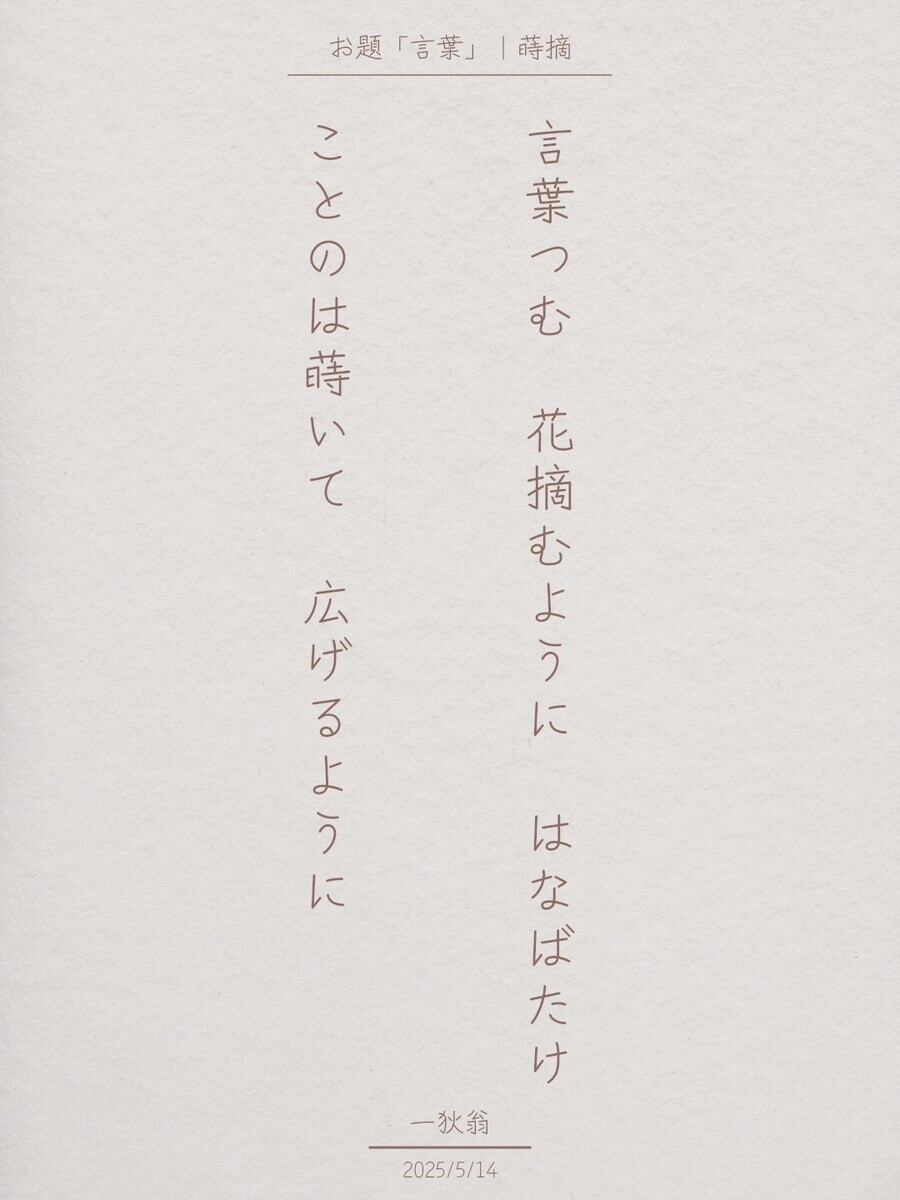 お題「言葉」｜蒔摘
言葉つむ　花摘むように　はなばたけ
ことのは蒔いて　広げるように
一狄翁
2025/5/14